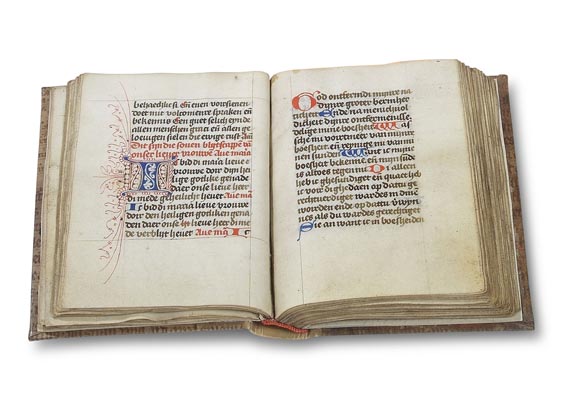 behachlic si Ende enen vorsienen
doet mit volcomenre spraken en
bekennis Een guet selich eynde
allen menschen gracie en allen ge
louigen sielen die ewige rust Amen
Dit sijn die souen
onser lieuer vrouwen Aue maria
Ic bid di maria lieue
vrouwe doer den hey
lige gotlike genade
daer onse lieue heer
di mede geheilicht heuet Aue ma
Ic bid di maria lieue vrouwe
doer den heiligen gotliken gena
den daer onse lieue heer di me
de verblijt heuet Aue ma Ic
God ontfermdi mijnre na
dijnre groter bermher
ticheit Ende na menichuol
dicheit dijnre ontfermenisse
delige mine boesheit
vorder was mi van minre
boesheit en reynige mi van mi
nen sunden Want ic mijn
boesheit bekenne en mijn sunde
is altoes tegen mi Di alleen
heb ic ghesundiget en quaet heb
ic voer di ghedaen op dattu ge
rechtuerdiget wardes in dinen
woerden ende op dattu verwyn
nes als du wordes gerechtiget
Sie an want ic in boesheiden